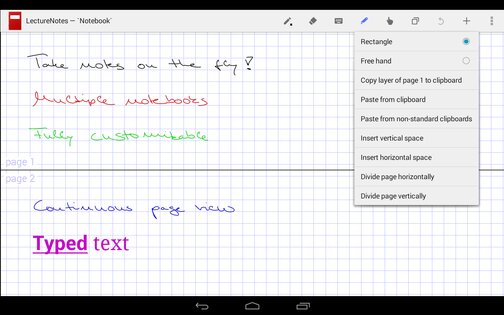 LectureNotes — 'Notebook'
Rectangle
Free hand
Copy layer of page 1 to clipboard
Paste from clipboard
Paste from non-standard clipboards
Insert vertical space
Insert horizontal space
Divide page horizontally
Divide page vertically
Take notes on the fly!
Multiple notebooks
Fully customizable
page 1
page 2
Continuous page view
Typed text